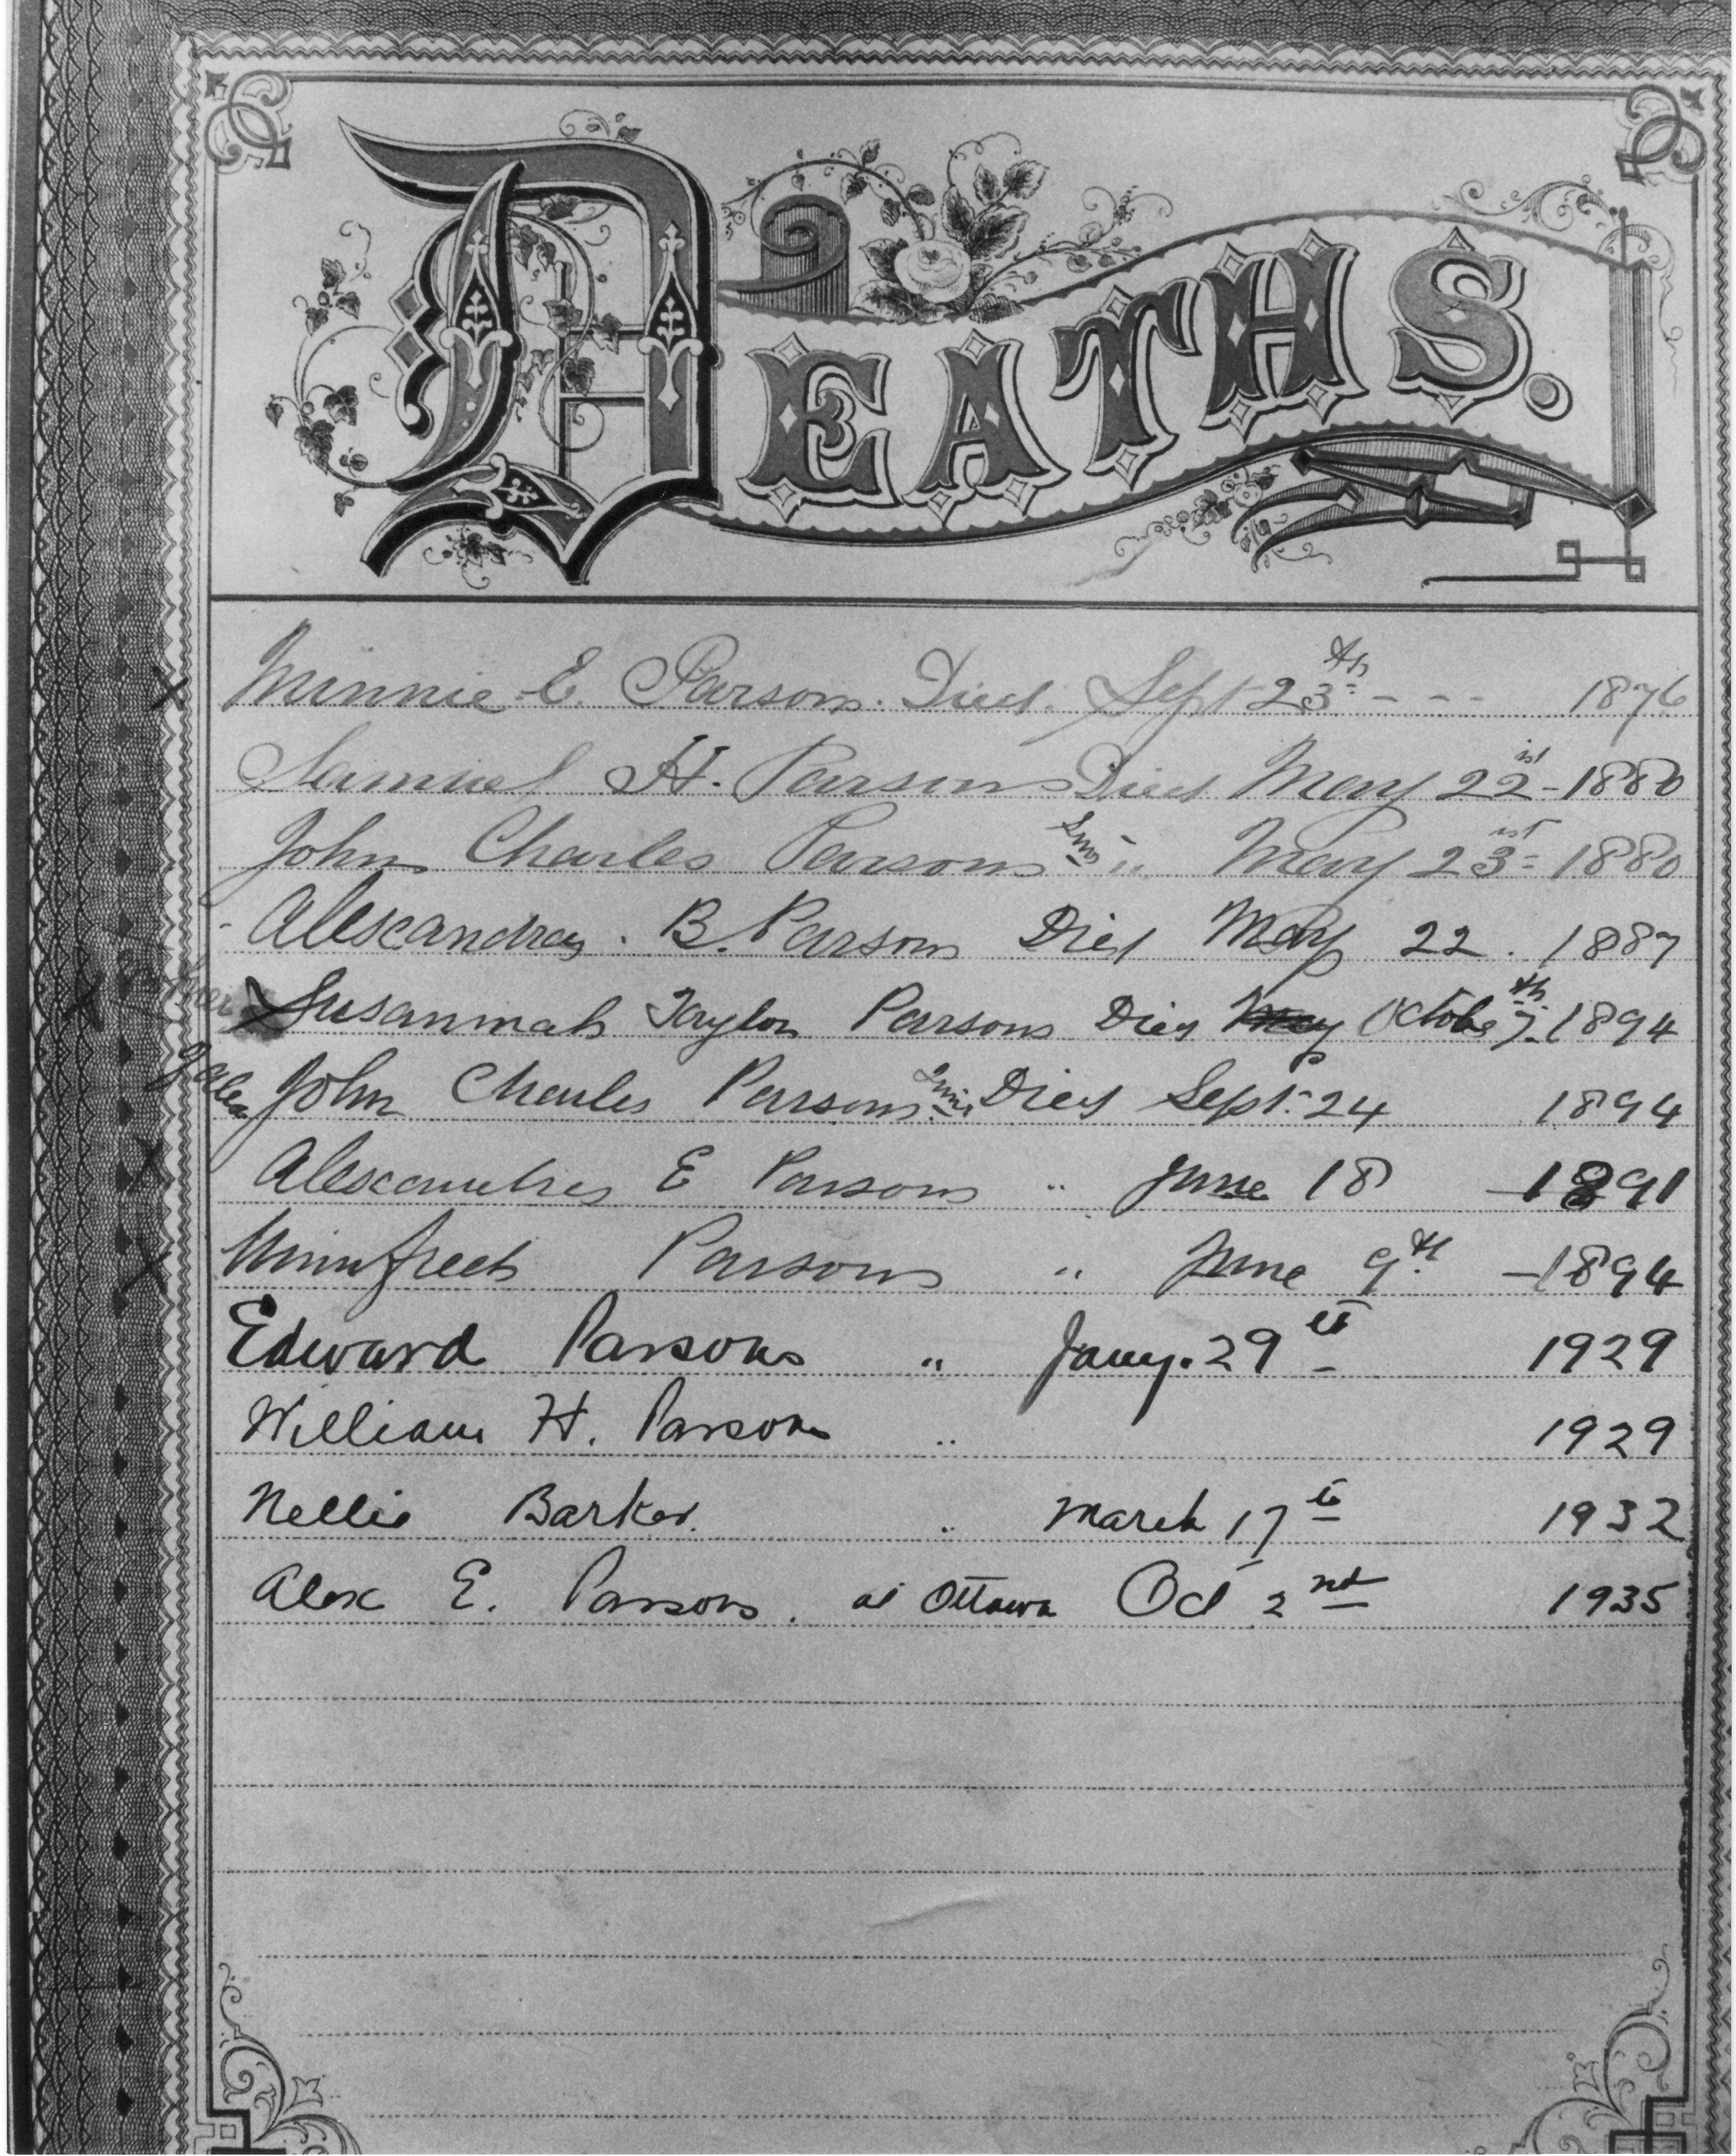 DEATHS.
Minnie E. Parsons. Died. Sept 23th - - - 1876
Samuel H. Parsons Died May 22st - 1880
John Charles Parsons Snr " May 23st - 1880
Alexandra. B. Parsons Died May 22. 1887
Susannah Taylor Parsons Died May October 7th 1894
John Charles Parsons Died Sept. 24 1894
E Parsons " June 18 - 1891
Parsons " June 9th - 1894
Edward Parsons " Jany. 29th 1929
William H. Parsons " 1929
Nellie Barker. " March 17th 1932
Alex E. Parsons. at Ottawa Oct 2nd 1935